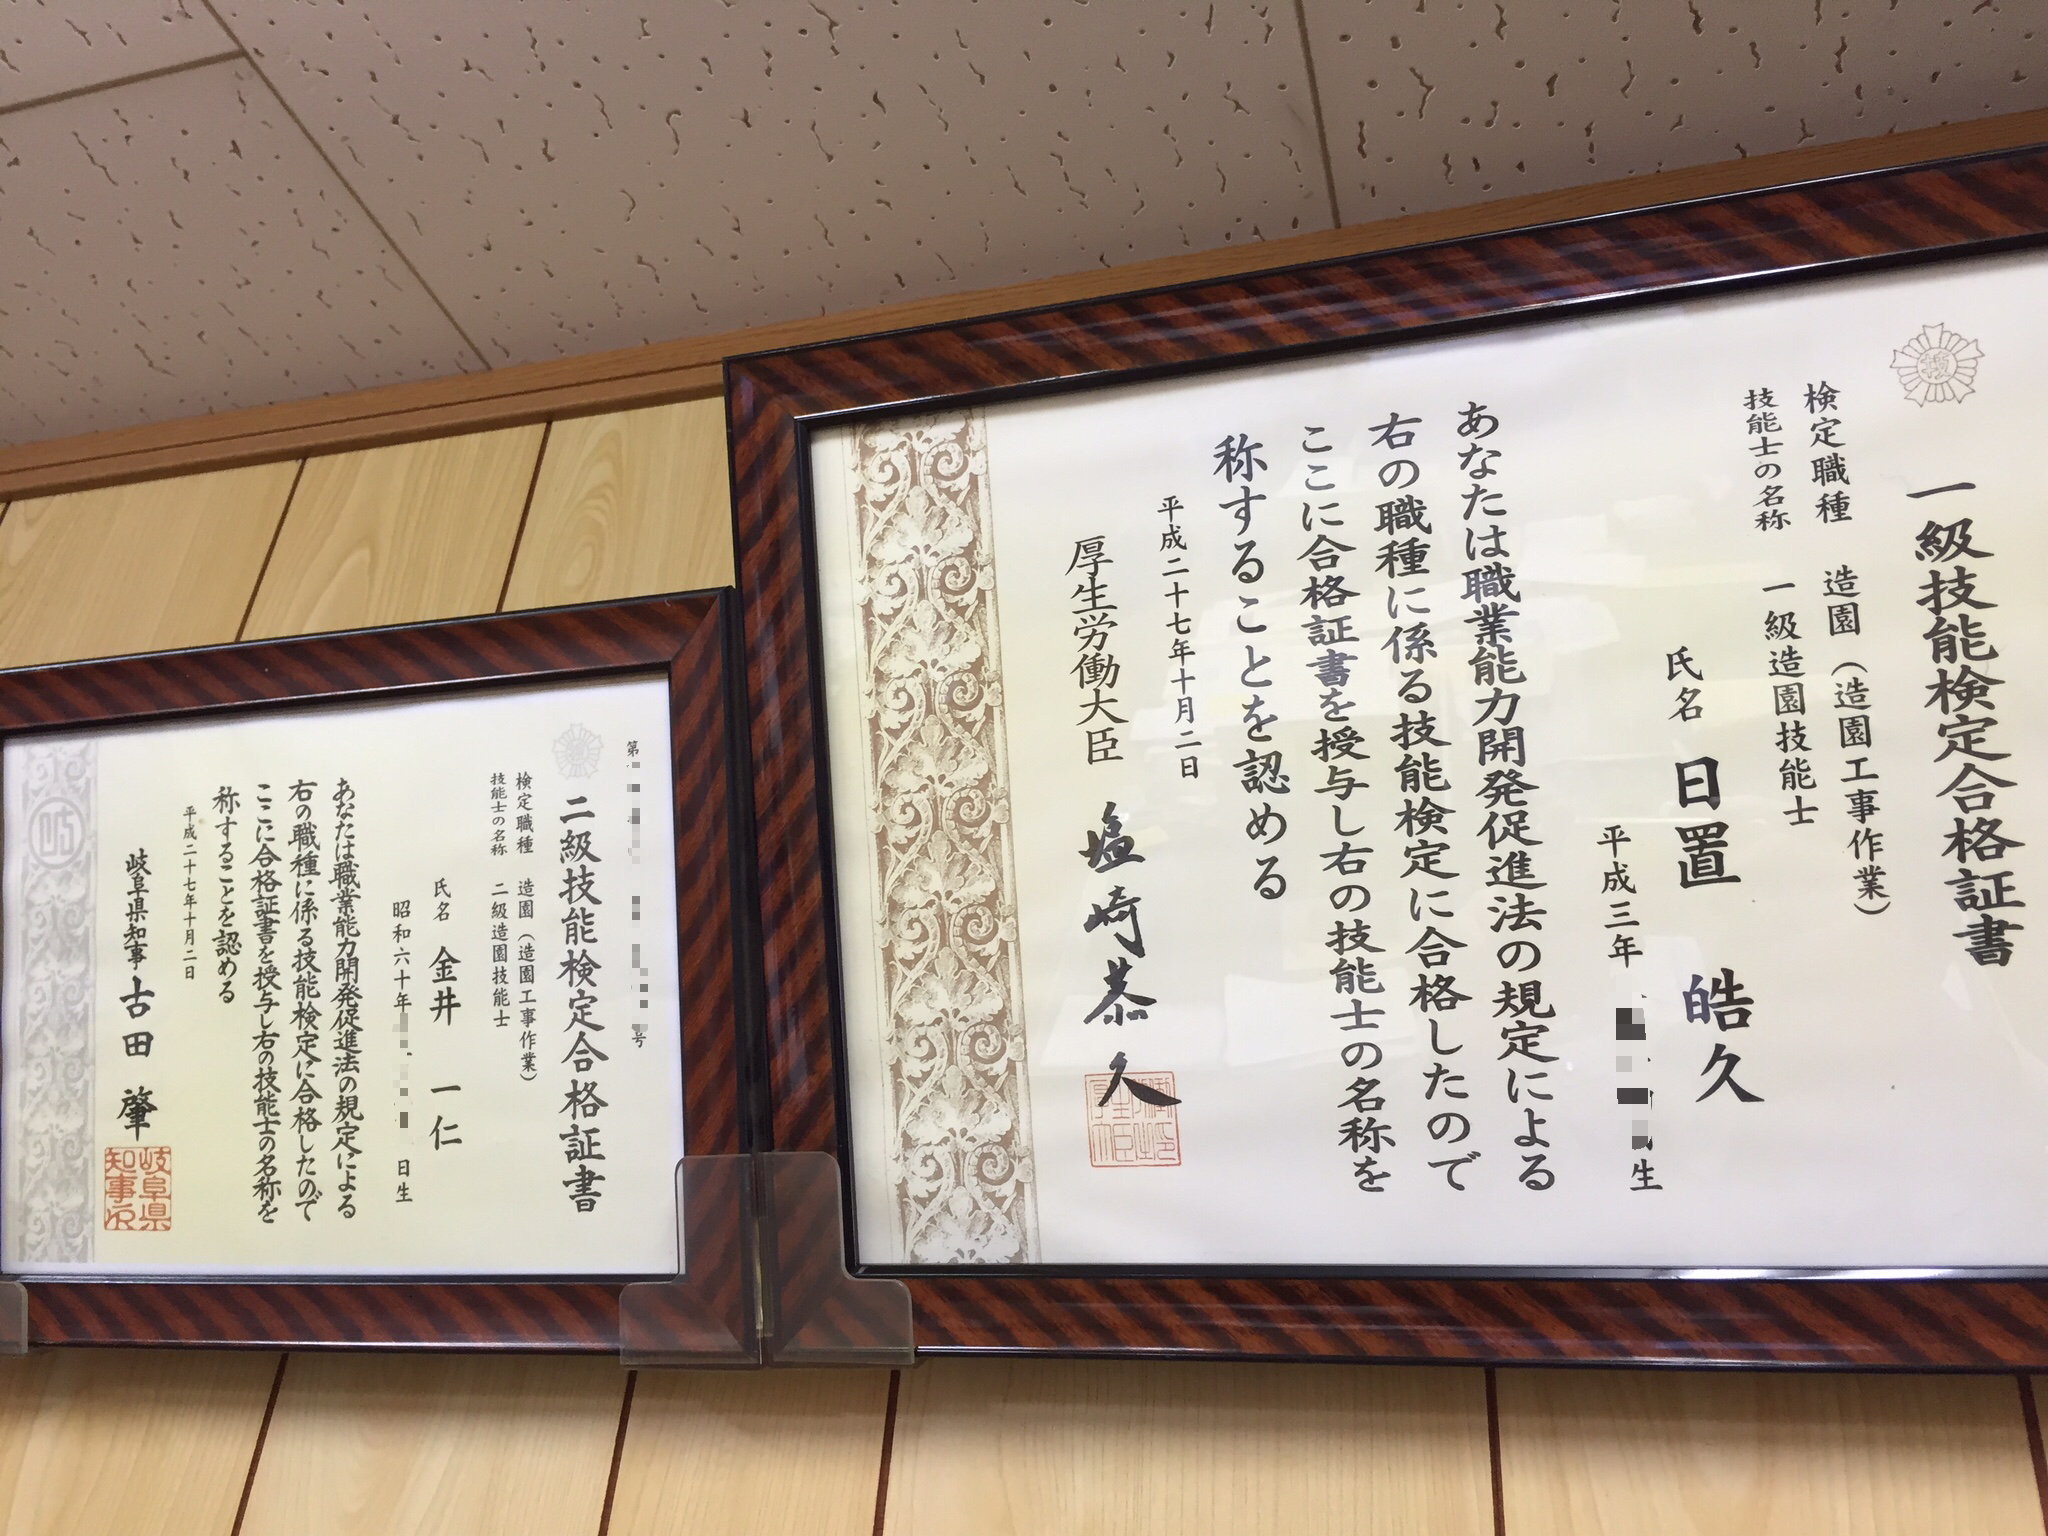 技
一級技能検定合格証書
検定職種 造園（造園工事作業）
技能士の名称 一級造園技能士
氏名 日置 皓久
平成三年 生
あなたは職業能力開発促進法の規定による
右の職種に係る技能検定に合格したので
ここに合格証書を授与し右の技能士の名称を
称することを認める
平成二十七年十月二日
厚生労働大臣 塩崎恭久
第 号
二級技能検定合格証書
検定職種 造園（造園工事作業）
技能士の名称 二級造園技能士
氏名 金井 一仁
昭和六十年 日生
あなたは職業能力開発促進法の規定による
右の職種に係る技能検定に合格したので
ここに合格証書を授与し右の技能士の名称を
称することを認める
平成二十七年十月二日
岐阜県知事 古田 肇
岐阜県
知事印
岐